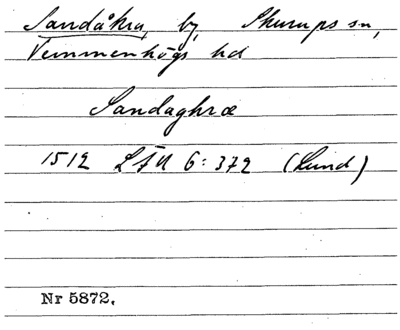 Sandåkra, by, Skurups sn,
Vemmenhögs hd
Sandaghræ
1512 LÄU 6:372 (Lund)
Nr 5872.